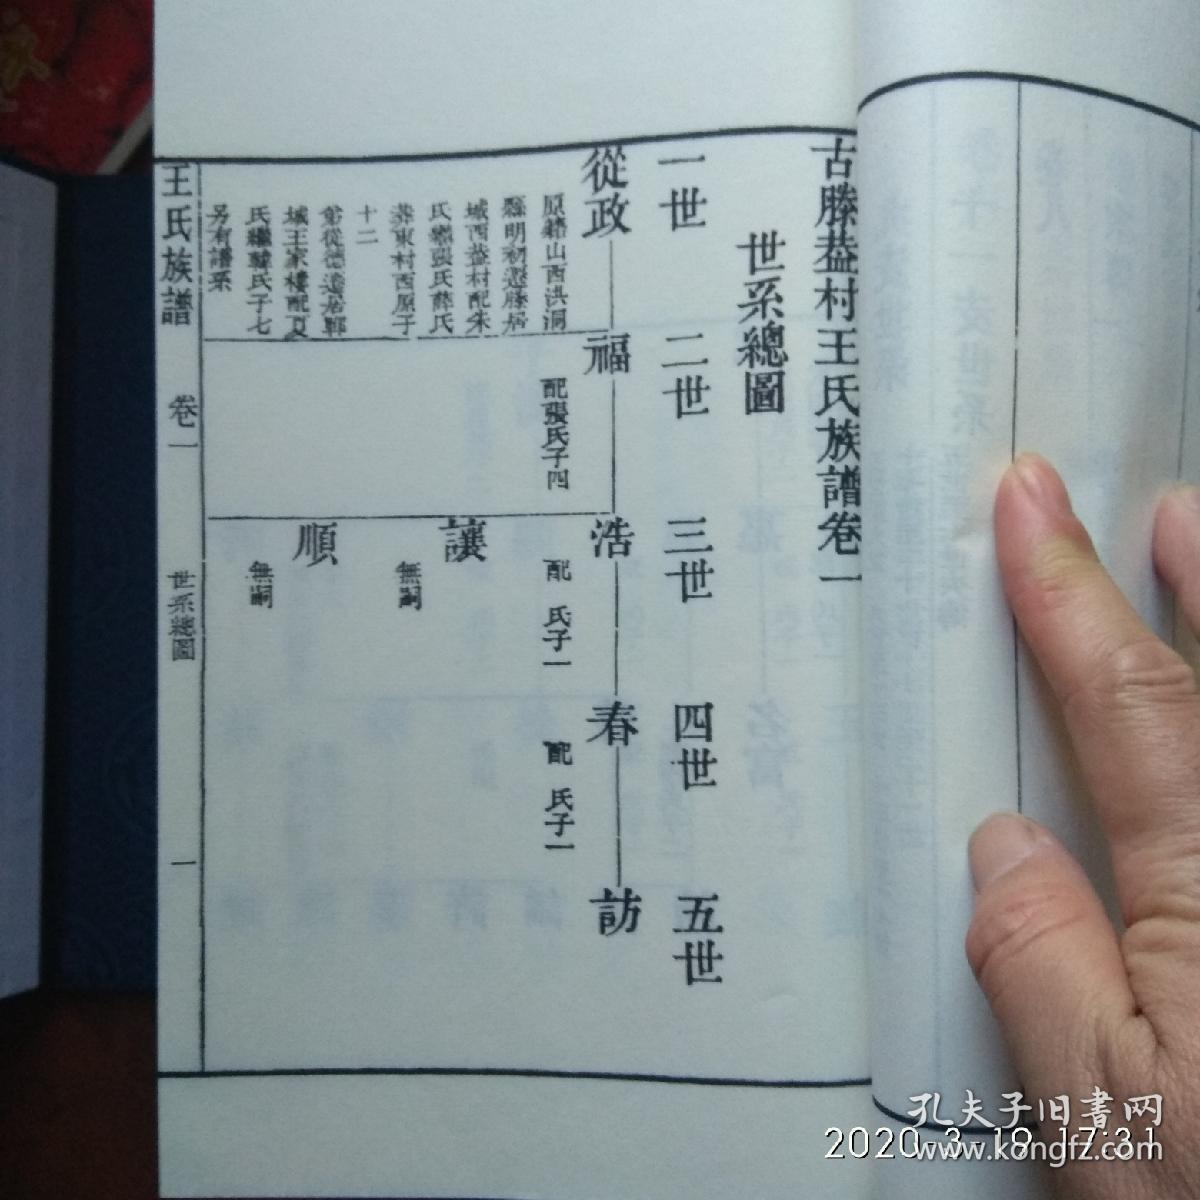 古滕葢村王氏族譜卷一
世系總圖
一世
二世
三世
四世
五世
從政
福
浩
春
訪
原籍山西洪洞
縣明初遷滕居
城西葢村配朱
氏繼張氏薛氏
葬東村西原子
十二
弟從德遠居鄆
城王家樓配夏
氏繼韓氏子七
另有譜系
配張氏子四
配 氏子一
配 氏子一
讓
無嗣
順
無嗣
王氏族譜
卷一
世系總圖
一
孔夫子旧書网
2020-3-19 17:31
www.kongfz.com